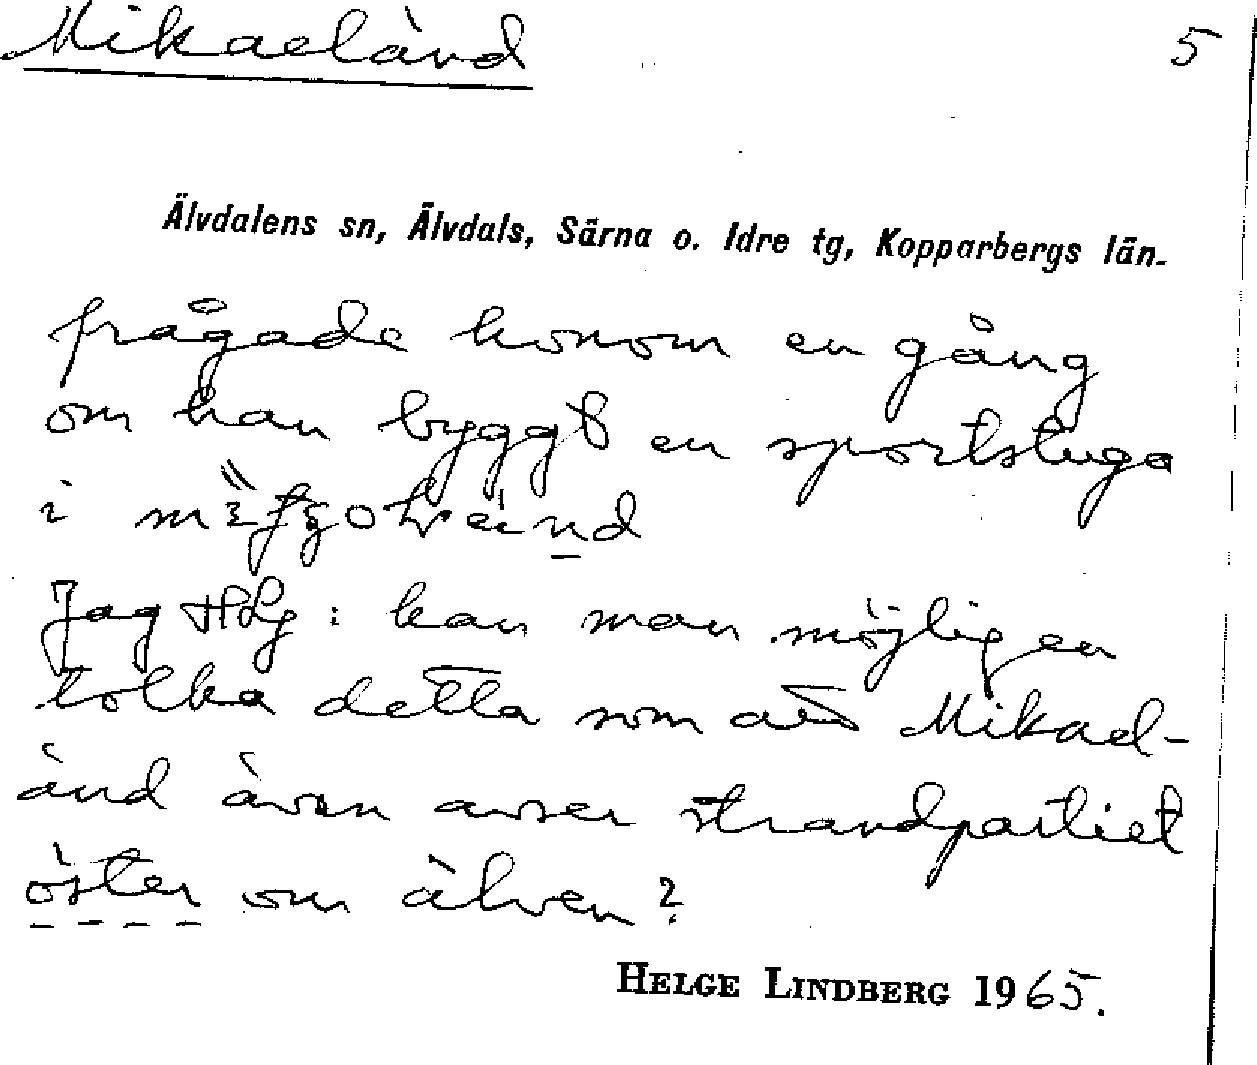 Mikaeländ 5
Älvdalens sn, Älvdals, Särna o. Idre tg, Kopparbergs län.
frågade honom en gång
om han byggt en sportstuga
i
Jag HLg: kan man möjligen
tolka detta som att Mikael-
änd även avser strandpartiet
öster om älven?
HELGE LINDBERG 1965.